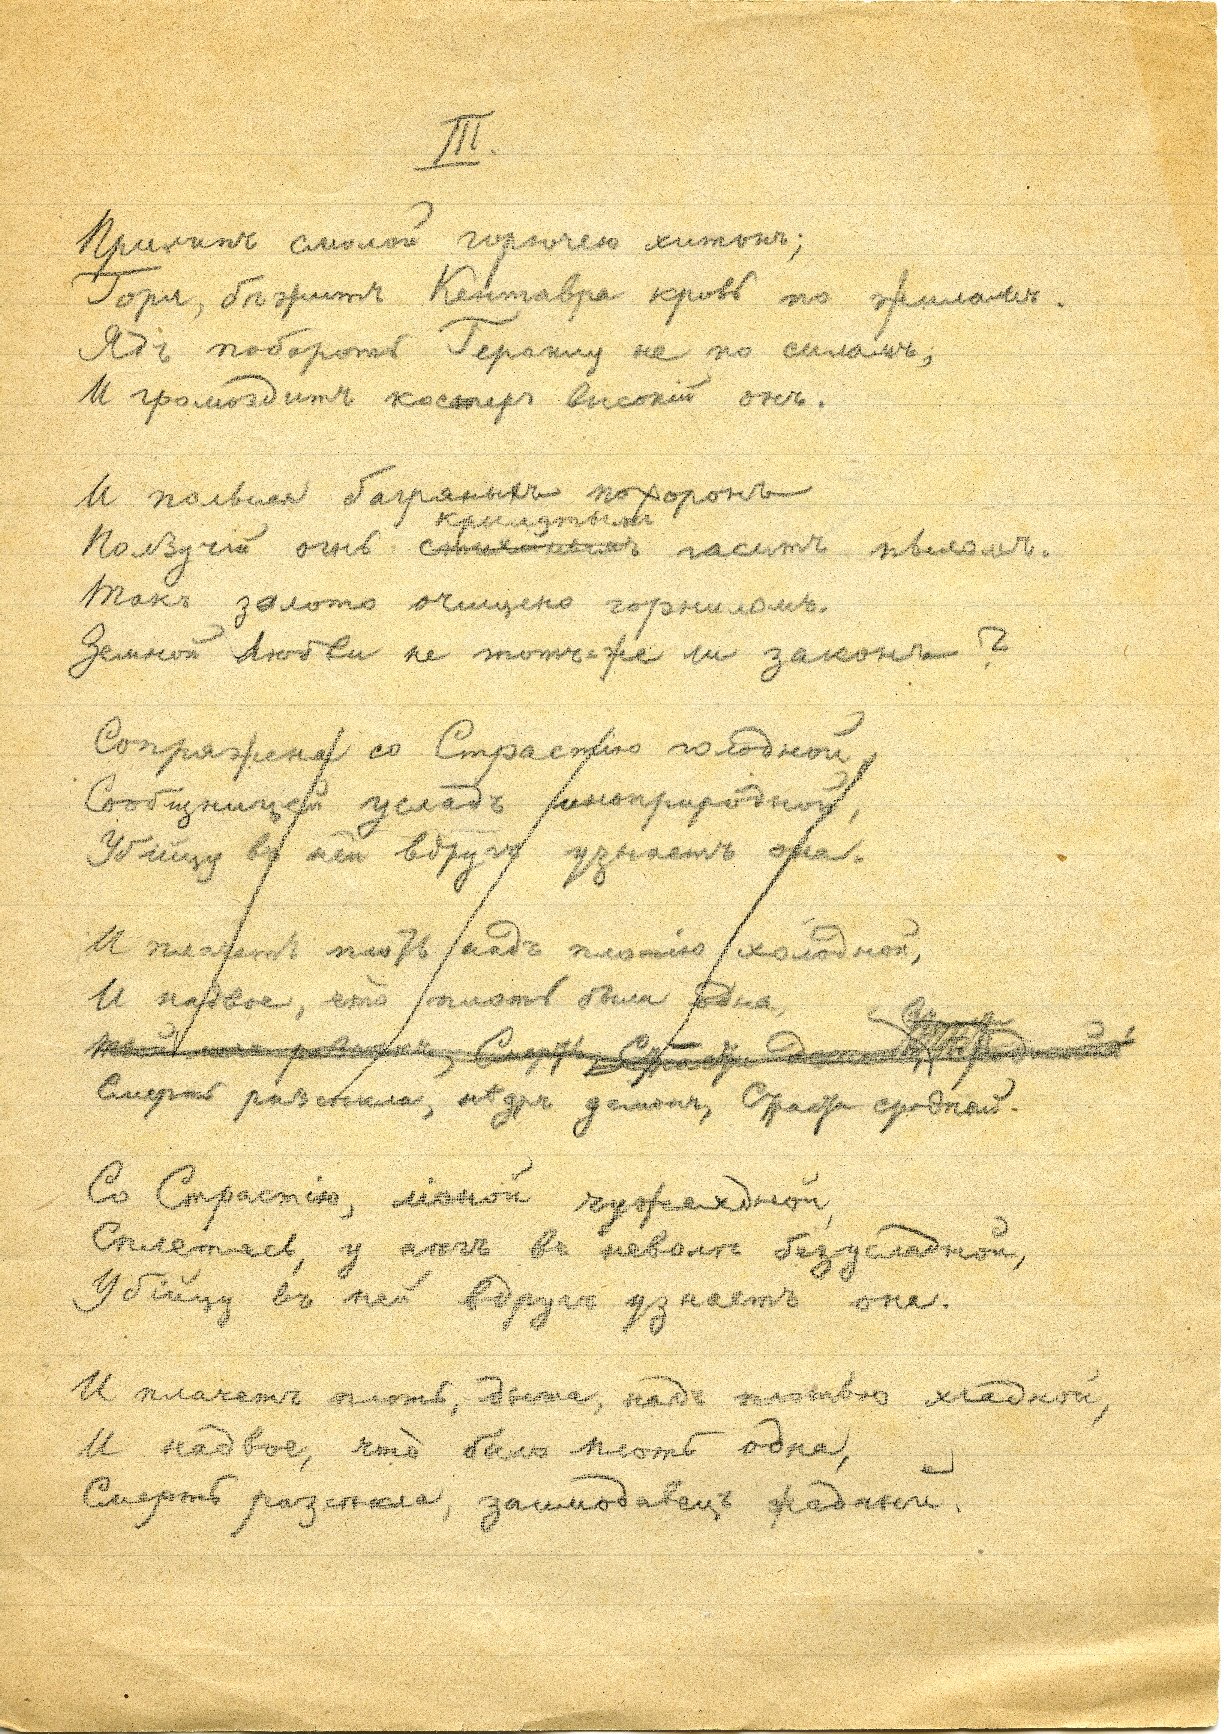 III.
Прилипъ смолой горючею хитонъ;
Горя, бѣжитъ Кентавра кровь по жиламъ.
Ядъ побороть Гераклу не по силамъ;
И громоздитъ костеръ высокій онъ.
И полымя багряныхъ похоронъ
крылатымъ
Ползучій огнь стихійнымъ гаситъ пыломъ.
Такъ золото очищено горниломъ.
Земной Любви не тотъ-же ли законъ?
Сопряжена со Страстію голодной,
Сообщницей усладъ инопри­родной,
Убійцу въ ней вдругъ узнаетъ она.
И плачетъ плоть надъ плотію холодной,
И надвое, что плоть была одна,
Смерть разсѣкла, нѣдръ демонъ, Страсти сродный.
Со Страстію, міной чужеядной,
Сплетясь, у нихъ въ неволѣ безусладной,
Убійцу въ ней вдругъ узнаетъ она.
И плачетъ плоть, дымна, надъ плотью хладной,
И надвое, что было плоть одна,
Смерть разсѣкла, заимодавецъ жадный.